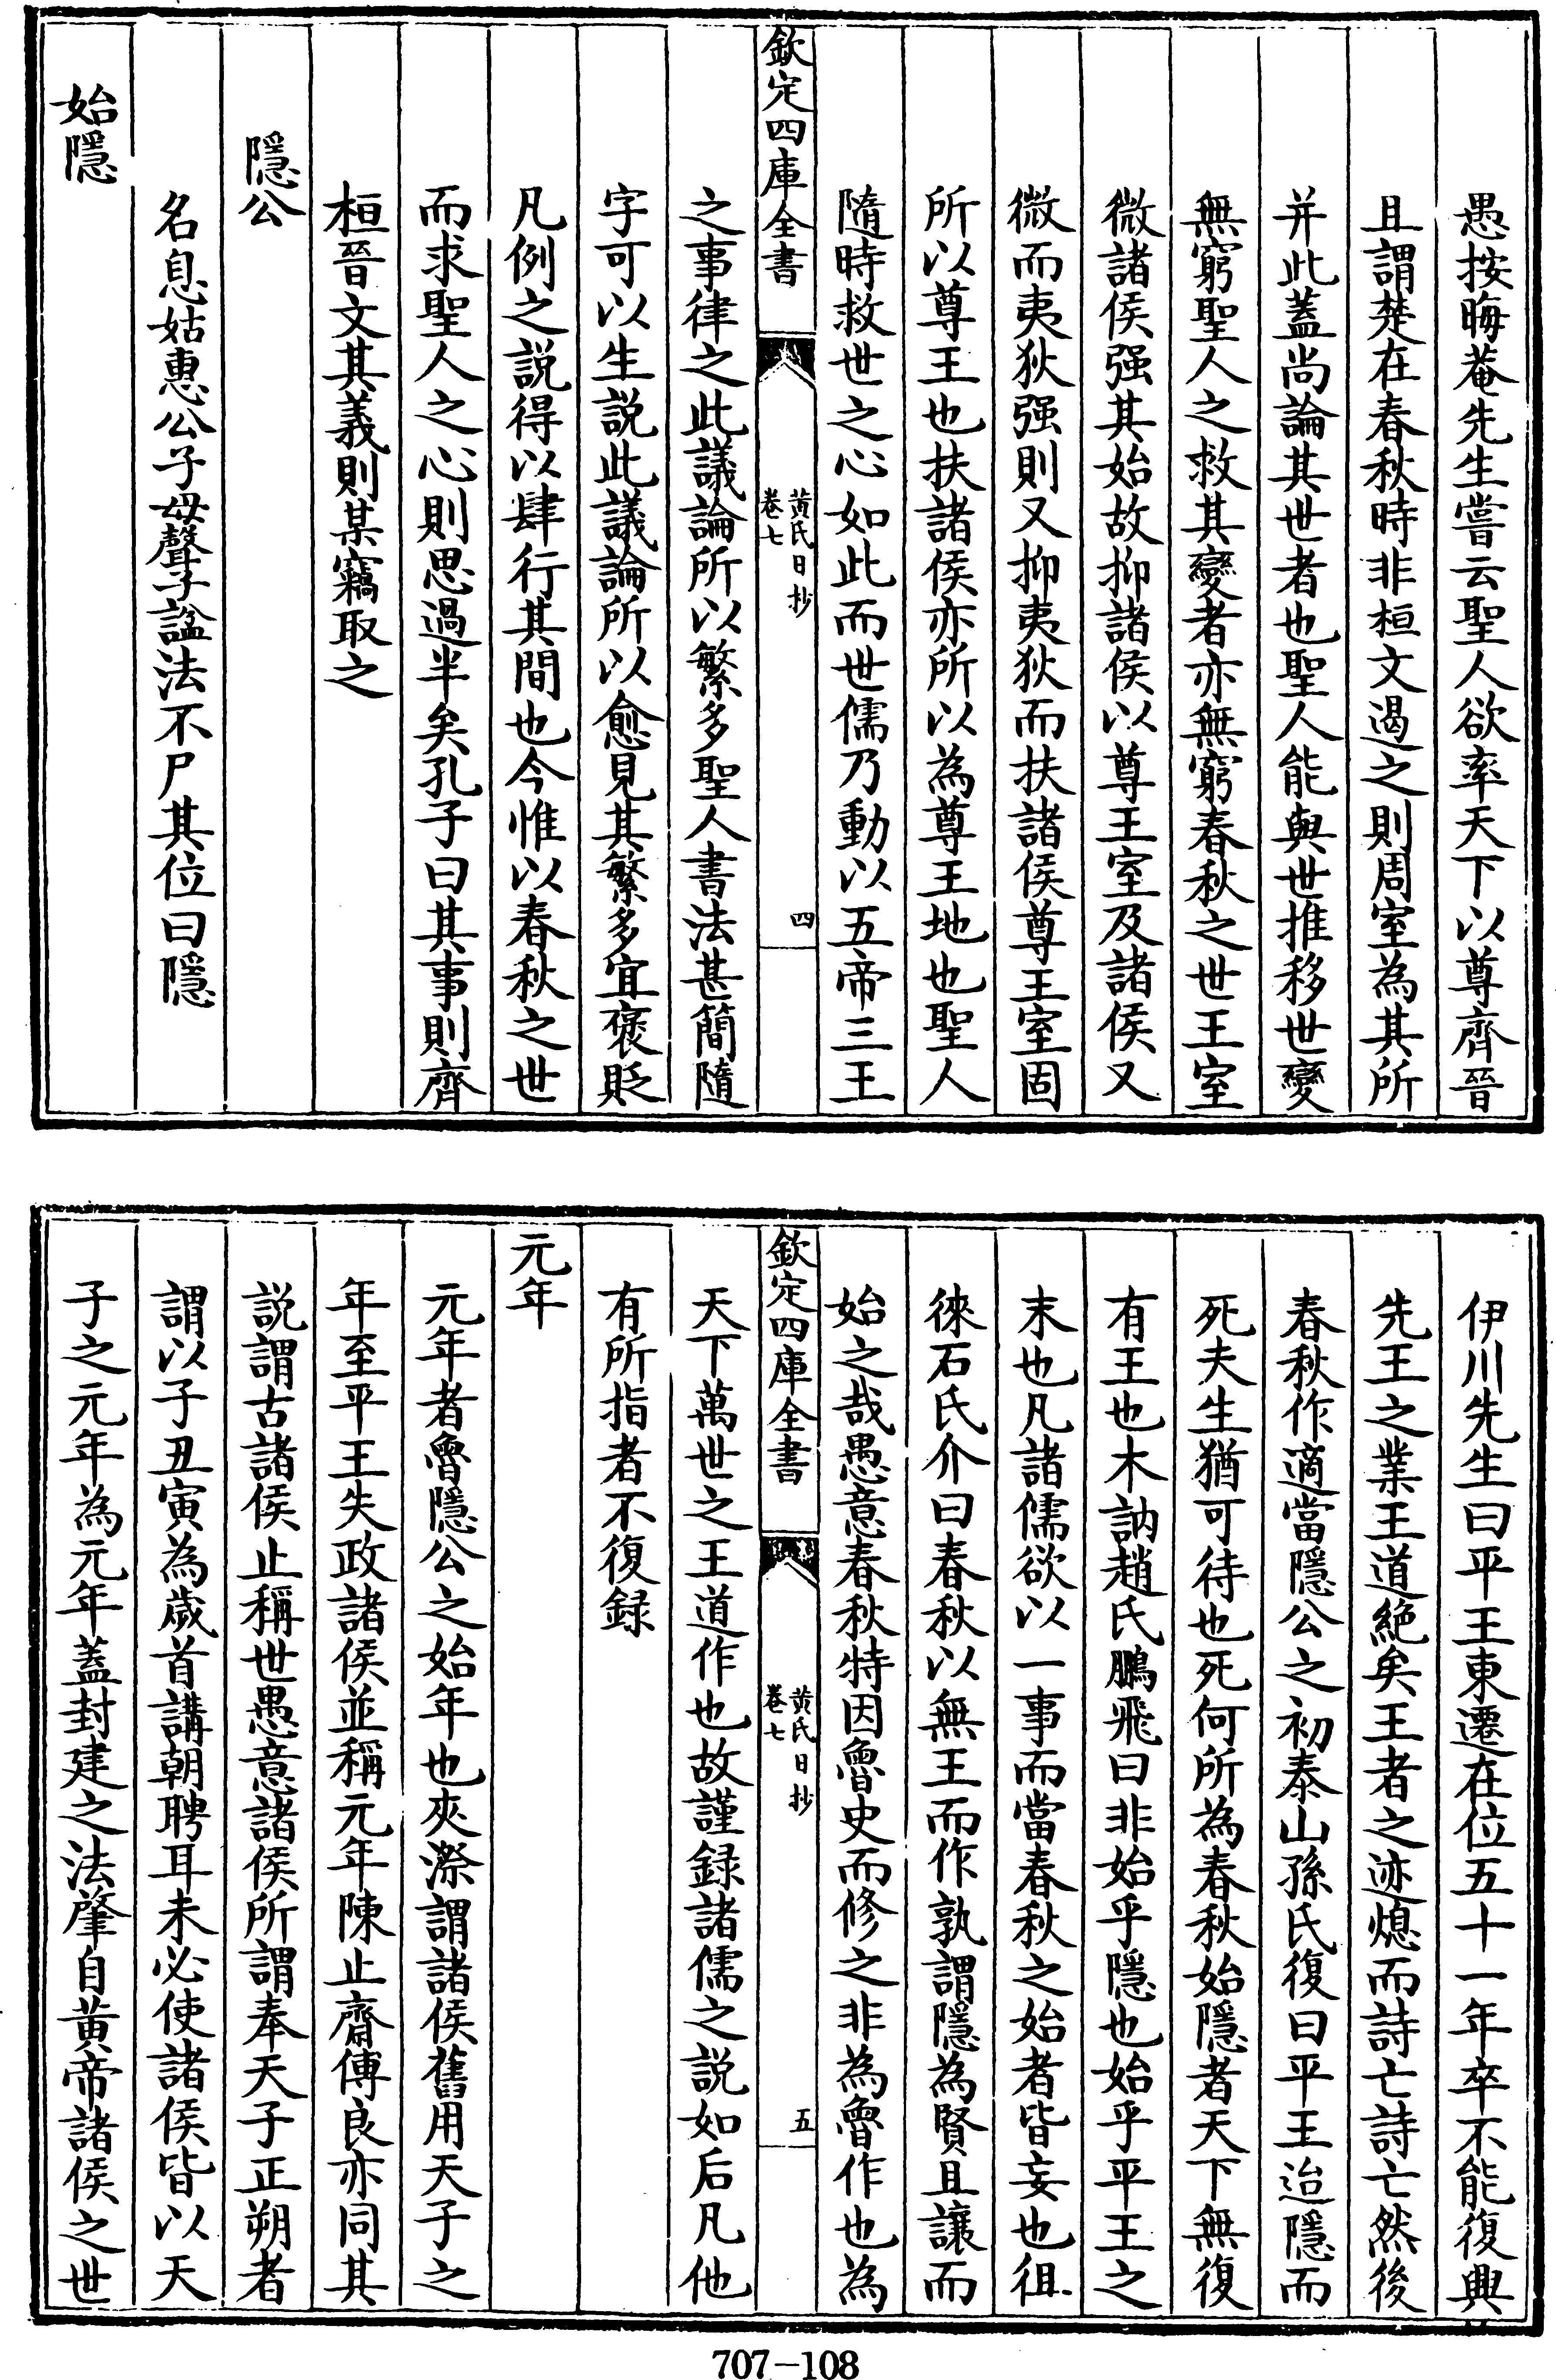 愚按晦菴先生嘗云聖人欲率天下以尊齊晉
且謂楚在春秋時非桓文遏之則周室為其所
并此蓋尚論其世者也聖人能與世推移世變
無窮聖人之救其變者亦無窮春秋之世王室
微諸侯强其始故抑諸侯以尊王室及諸侯又
微而夷狄强則又抑夷狄而扶諸侯尊王室固
所以尊王也扶諸侯亦所以為尊王地也聖人
隨時救世之心如此而世儒乃動以五帝三王
欽定四庫全書
黄氏日抄
卷七
四
之事律之此議論所以繁多聖人書法甚簡隨
字可以生説此議論所以愈見其繁多宜褒貶
凡例之説得以肆行其間也今惟以春秋之世
而求聖人之心則思過半矣孔子曰其事則齊
桓晉文其義則某竊取之
隱公
名息姑惠公子母聲子諡法不尸其位曰隱
始隱
伊川先生曰平王東遷在位五十一年卒不能復興
先王之業王道絶矣王者之迹熄而詩亡詩亡然後
春秋作適當隱公之初泰山孫氏復曰平王迨隱而
死夫生猶可待也死何所為春秋始隱者天下無復
有王也木訥趙氏鵬飛曰非始乎隱也始乎平王之
末也凡諸儒欲以一事而當春秋之始者皆妄也徂
徠石氏介曰春秋以無王而作孰謂隱為賢且讓而
始之哉愚意春秋特因魯史而修之非為魯作也為
欽定四庫全書
黄氏日抄
卷七
五
天下萬世之王道作也故謹録諸儒之説如后凡他
有所指者不復録
元年
元年者魯隱公之始年也夾漈謂諸侯舊用天子之
年至平王失政諸侯並稱元年陳止齋傅良亦同其
説謂古諸侯止稱世愚意諸侯所謂奉天子正朔者
謂以子丑寅為歲首講朝聘耳未必使諸侯皆以天
子之元年為元年蓋封建之法肇自黄帝諸侯之世
707-108